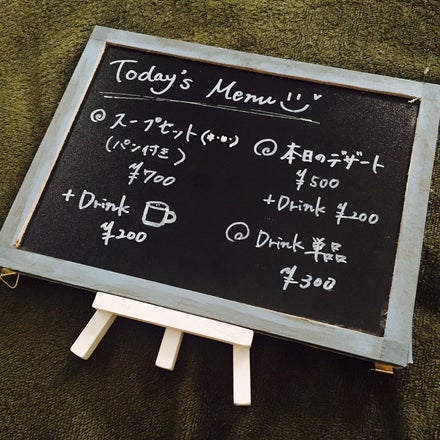 Today's Menu
◎ スープセット(*・ω・)
(パン付き)
¥700
+ Drink
¥200
◎ 本日のデザート
¥500
+ Drink ¥200
◎ Drink 単品
¥300